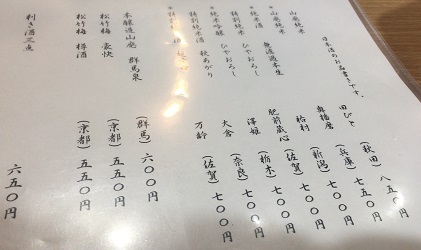 日本酒のお品書きです。
*山廃純米 田びと (秋田) 八五〇円
*山廃純米 奥播磨 (兵庫) 七五〇円
*純米酒 無濾過本生 (新潟) 七〇〇円
*特別純米酒 ひやおろし 肥前蔵心 (佐賀) 七〇〇円
*純米吟醸 ひやおろし 澤姫 (栃木) 七〇〇円
*特別純米酒 秋あがり 大倉 (奈良) 七〇〇円
万齢 (佐賀) 七〇〇円
本醸造山廃 群馬泉 (群馬) 六〇〇円
松竹梅 豪快 (京都) 五五〇円
松竹梅 樽酒 (京都) 五五〇円
利き酒三点 六五〇円